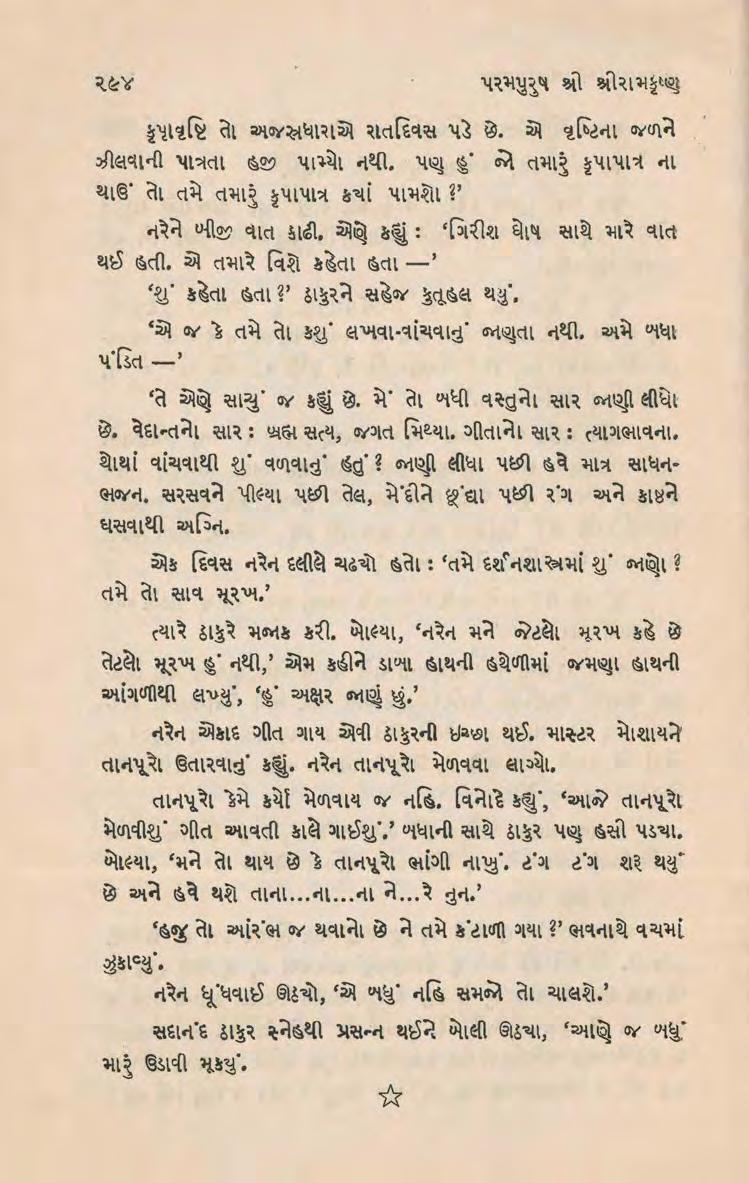 ૨૯૪ પરમપુરુષ શ્રી શ્રીરામકૃષ્ણ
કૃપાવૃષ્ટિ તો અજસ્રધારાએ રાતદિવસ પડે છે. એ વૃષ્ટિના જળને
ઝીલવાની પાત્રતા હજી પામ્યો નથી. પણ હું જો તમારું કૃપાપાત્ર ના
થાઉં તો તમે તમારું કૃપાપાત્ર કયાં પામશો ?’
નરેને બીજી વાત કાઢી. એણે કહ્યું : ‘ગિરીશ ઘોષ સાથે મારે વાત
થઈ હતી. એ તમારે વિશે કહેતા હતા —’
‘શું કહેતા હતા ?’ ઠાકુરને સહેજ કુતૂહલ થયું.
‘એ જ કે તમે તો કશું લખવા-વાંચવાનું જાણતા નથી. અમે બધા
પંડિત —’
‘તે એણે સાચું જ કહ્યું છે. મેં તો બધી વસ્તુનો સાર જાણી લીધો
છે. વેદાન્તનો સાર : બ્રહ્મ સત્ય, જગત મિથ્યા. ગીતાનો સાર : ત્યાગભાવના.
થોથાં વાંચવાથી શું વળવાનું હતું ? જાણી લીધા પછી હવે માત્ર સાધન-
ભજન. સરસવને પીલ્યા પછી તેલ, મેંદીને છૂંદ્યા પછી રંગ અને કાષ્ઠને
ઘસવાથી અગ્નિ.
એક દિવસ નરેન દલીલે ચઢયો હતો : ‘તમે દર્શનશાસ્ત્રમાં શું જાણો ?
તમે તો સાવ મૂરખ.’
ત્યારે ઠાકુરે મજાક કરી. બોલ્યા, ‘નરેન મને જેટલો મૂરખ કહે છે
તેટલો મૂરખ હું નથી,’ એમ કહીને ડાબા હાથની હથેળીમાં જમણા હાથની
આંગળીથી લખ્યું, ‘હું અક્ષર જાણું છું.’
નરેન એકાદ ગીત ગાય એવી ઠાકુરની ઇચ્છા થઈ. માસ્ટર મોશાયને
તાનપૂરો ઉતારવાનું કહ્યું. નરેન તાનપૂરો મેળવવા લાગ્યો.
તાનપૂરો કેમે કર્યો મેળવાય જ નહિ. વિનોદે કહ્યું, ‘આજે તાનપૂરો
મેળવીશું ગીત આવતી કાલે ગાઈશું.’ બધાની સાથે ઠાકુર પણ હસી પડયા.
બોલ્યા, ‘મને તો થાય છે કે તાનપૂરો ભાંગી નાખું. ટંગ ટંગ શરૂ થયું
છે અને હવે થશે તાના...ના...ના ને...રે નુન.’
‘હજુ તો આરંભ જ થવાનો છે ને તમે કંટાળી ગયા ?’ ભવનાથે વચમાં
ઝુકાવ્યું.
નરેન ધૂંધવાઈ ઊઠયો, ‘એ બધું નહિ સમજો તો ચાલશે.’
સદાનંદ ઠાકુર સ્નેહથી પ્રસન્ન થઈને બોલી ઊઠયા, ‘આણે જ બધું
મારું ઉડાવી મૂકયું.